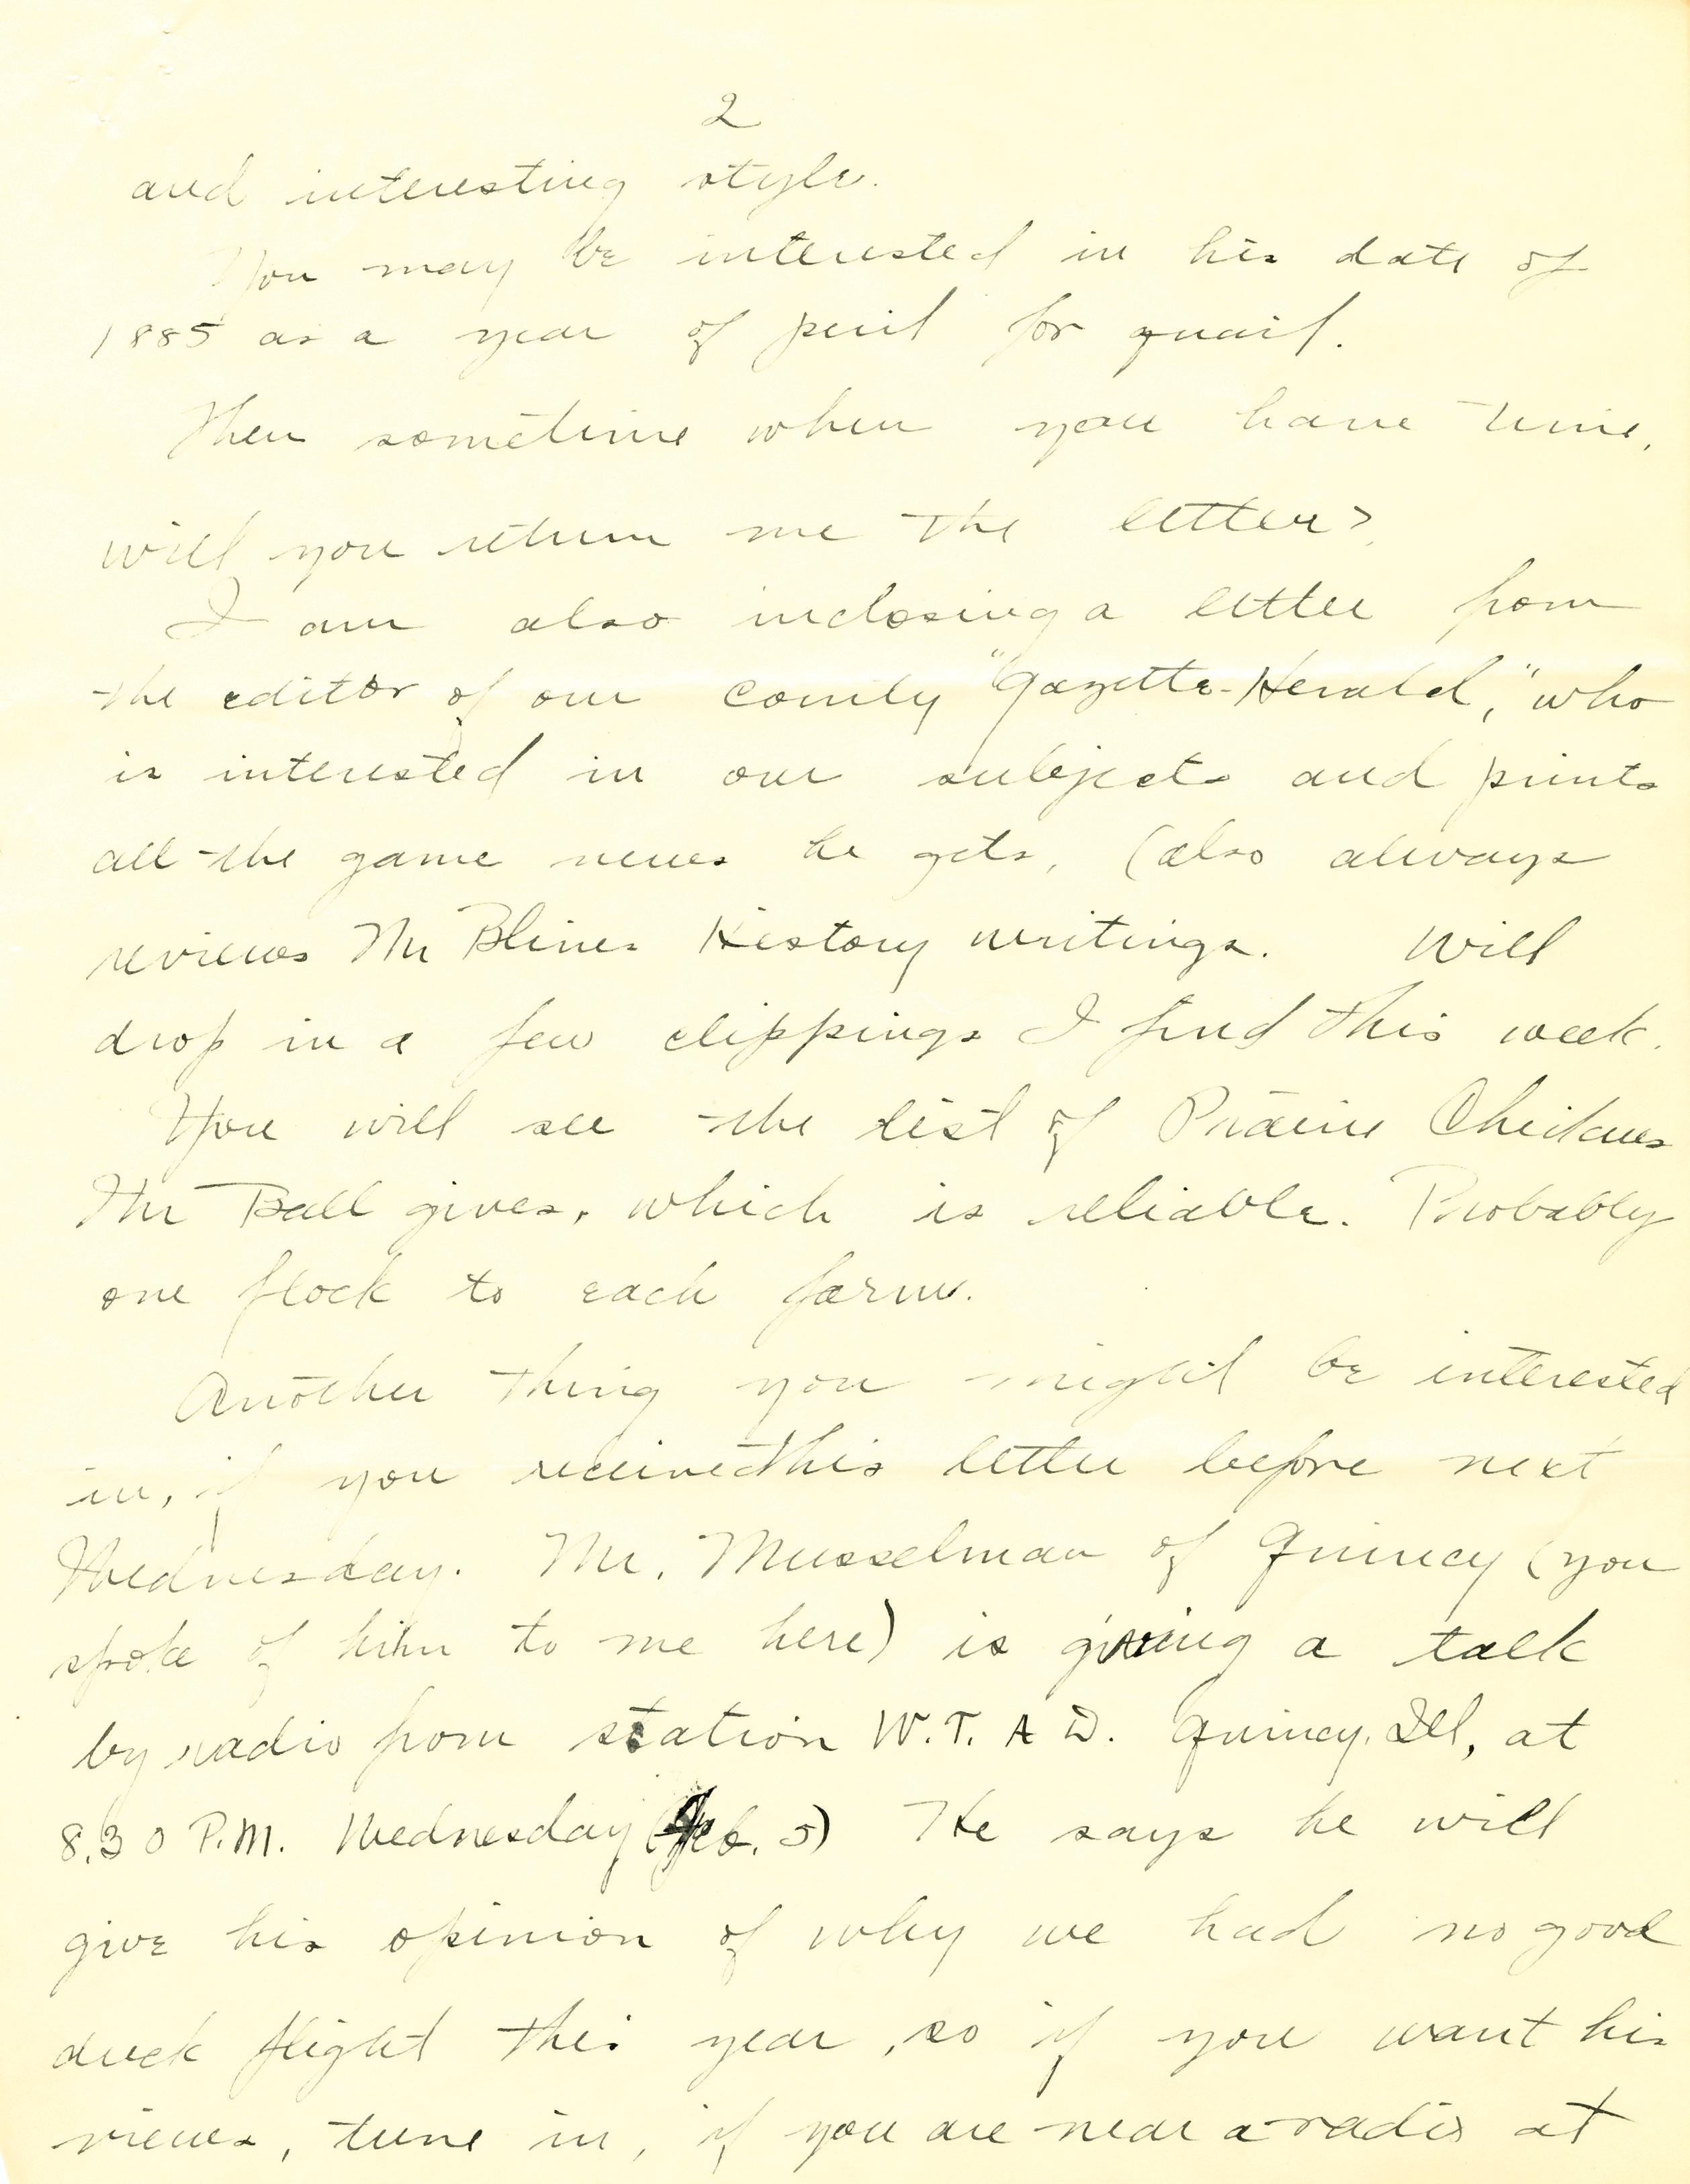 2
and interesting style.
You may be interested in his date of
1885 as a year of peril for quail.
Then sometime when you have time,
will you return me the letter?
I am also inclosing a letter from
the editor of our county "Gazette-Herald," who
is interested in our subjects and prints
all the game news he gets, (also always
reviews Mr Blines History writings. Will
drop in a few clippings I find this week.
You will see the list of Prairie Chickens
Mr Ball gives, which is reliable. Probably
one flock to each farm.
Another thing you might be interested
in, if you received this letter before next
Wednesday. Mr. Musselman of Quincy (you
spoke of him to me here) is giving a talk
by radio from station W.T.A D. Quincy, Ill, at
8.30 P.M. Wednesday (Feb. 5) He says he will
give his opinion of why we had no good
duck flight this year, so if you want his
views, tune in, if you are near a radio at